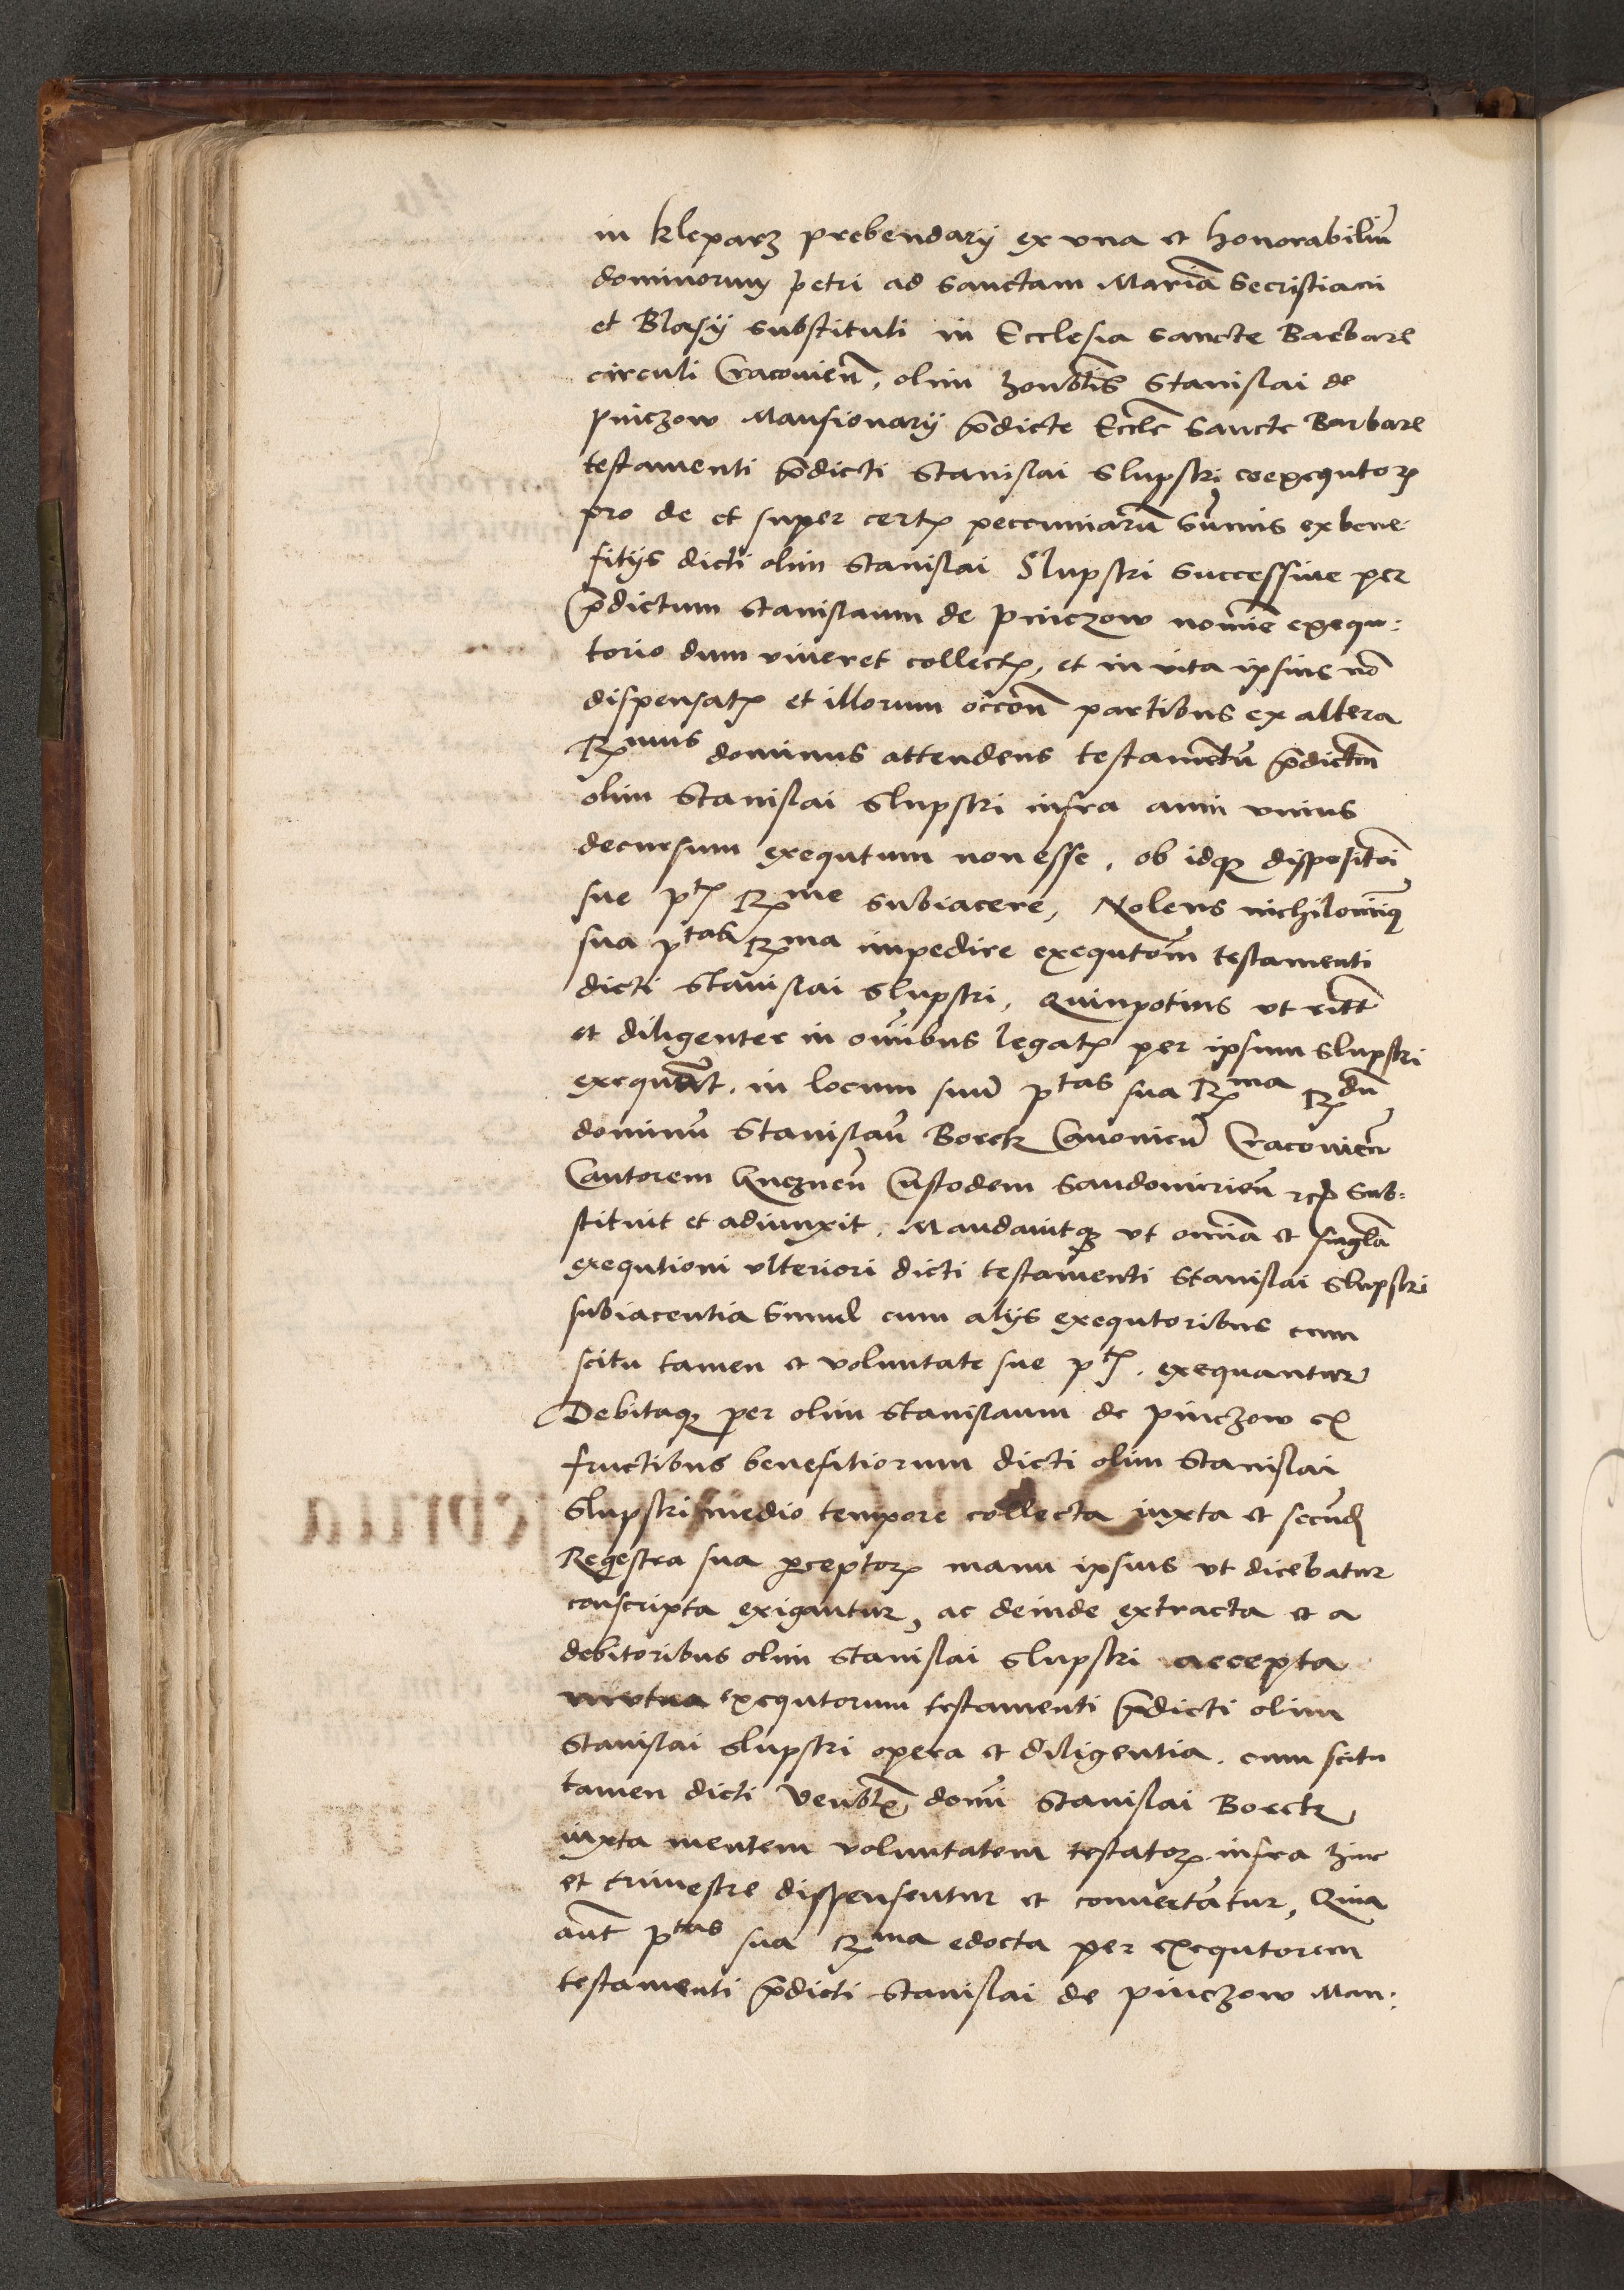 in Kleparz prebendarij ex vna et honorabiliu͂
dominorum petri ad Sanctam Maria͂ Secristiani
et Blasij substituti in Ecclesia Sancte Barbare
circuli Cracovien͂, olim honᵒblis Stanislai de
pinczow Mansionarij p͂dicte Eccle͂ Sancte Barbare
testamenti p͂dicti Stanislai Slupski coexequtorꝫ
pro de et super certꝭ pecuniaru͂ Su͂mis ex bene
fitijs dicti olim Stanislai Slupski Successiue per
p͂dictum Stanislaum de pinczow nomi͂e exequ:
torio dum viueret collectꝭ, et in vita ipsius no͂
dispensatꝭ et illorum occo͂n partibus ex altera
Rᵐᵘˢ dominus attendens testamentu͂ p͂dictu͂
olim Stanislai Slupski infra anni vnius
decursum exequtum non esse, ob idqꝫ dispositio͂i
sue pᵗꝭ Rᵐᵉ Subiacere, Nolens nichilomi͂qꝫ
sua pᵗᵃˢ Rᵐᵃ impedire exequto͂m testamenti
dicti Stanislai Slupski, Quinpotius vt rite͂
et diligenter in o͂nibus legatꝭ per ipsum Slupski
exequa͂t. in locum suu͂ pᵗᵃˢ sua Rᵐᵃ Rᵈᵘ͂
dominu͂ Stanislau͂ Borek Canonicu͂ Cracovien͂
Cantorem Gneznen͂ Custodem Sandomirien͂ zcꝭ Sub:
stituit et adiunxit, Mandauitqꝫ vt omnia͂ et singla͂
exequtioni vlteriori dicti testamenti Stanislai Slupski
subiacentia Simul cum alijs exequtoribus cum
scitu tamen et voluntate sue pᵗꝭ. exequantur
Debitaqꝫ per olim Stanislaum de pinczow ex
fructibus benefitiorum dicti olim Stanislai
Slupski medio tempore collecta iuxta et secu͂d
Regestra sua perceptorꝫ manu ipsius vt dicebatur
conscripta exigantur, ac deinde extracta et a
debitoribus olim Stanislai Slupski accepta
exequtorum testamenti p͂dicti olim
Stanislai Slupski opera et diligentia. cum scitu
tamen dicti Venᵒblis do͂ni Stanislai Borek
iuxta mentem voluntatem testatorꝫ infra hinc
et trimestre dispensentur et conuertatur, Quia
aut͂ pᵗᵃˢ sua Rᵐᵃ edocta per exequtorem
testamenti p͂dicti Stanislai de pinczow Man: